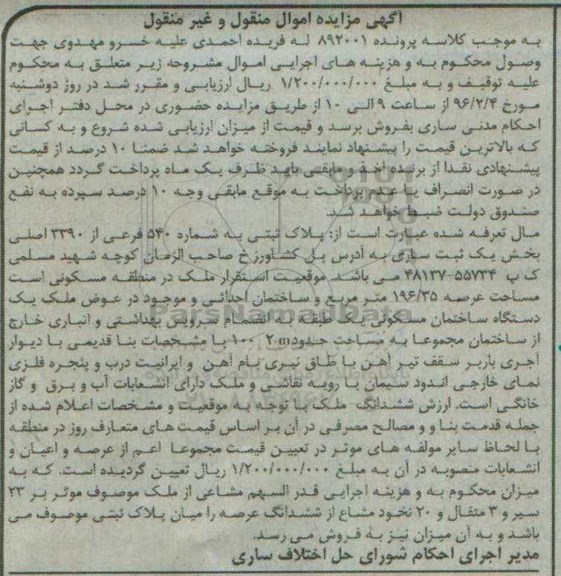 آگهی مزایده اموال منقول و غیر منقول
به موجب کلاسه پرونده ۸۹۲۰۰۱ له فریده احمدی علیه خسرو مهدوی جهت
وصول محکوم به و هزینه های اجرایی اموال مشروحه زیر متعلق به محکوم
علیه توقیف و به مبلغ ۱/۲۰۰/۰۰۰/۰۰۰ ریال ارزیابی و مقرر شد در روز دوشنبه
مورخ ۹۶/۲/۴ از ساعت ۹ الی ۱۰ از طریق مزایده حضوری در محل دفتر اجرای
احکام مدنی ساری بفروش برسد و قیمت از میزان ارزیابی شده شروع و به کسانی
که بالاترین قیمت را پیشنهاد نمایند فروخته خواهد شد ضمنا ۱۰ درصد از قیمت
پیشنهادی نقدا از برنده اخذ و مابقی باید ظرف یک ماه پرداخت گردد همچنین
در صورت انصراف یا عدم پرداخت به موقع مابقی وجه ۱۰ درصد سپرده به نفع
صندوق دولت ضبط خواهد شد.
مال تعرفه شده عبارت است از: پلاک ثبتی به شماره ۵۴۰ فرعی از ۳۳۹۰ اصلی
بخش یک ثبت ساری به آدرس پل کشاورز خ صاحب الزمان کوچه شهید مسلمی
ک پ ۵۵۷۳۴-۴۸۱۳۷ می باشد. موقعیت استقرار ملک در منطقه مسکونی است
مساحت عرصه ۱۹۶/۳۵ متر مربع و ساختمان احداثی و موجود در عوض ملک یک
دستگاه ساختمان مسکونی یک طبقه به انضمام سرویس بهداشتی و انباری خارج
از ساختمان مجموعا به مساحت حدود ۱۰۰ ۲m با مشخصات بنا قدیمی با دیوار
آجری باربر سقف تیر آهن با طاق تیری بام آهن و ایرانیت درب و پنجره فلزی
نمای خارجی اندود سیمان با رویه نقاشی و ملک دارای انشعابات آب و برق و گاز
خانگی است. ارزش ششدانگ ملک با توجه به موقعیت و مشخصات اعلام شده از
جمله قدمت بنا و و مصالح مصرفی در آن بر اساس قیمت های متعارف روز در منطقه
با لحاظ سایر مولفه های موثر در تعیین قیمت مجموعا اعم از عرصه و اعیان و
انشعابات منصوبه در آن به مبلغ ۱/۲۰۰/۰۰۰/۰۰۰ ریال تعیین گردیده است. که به
میزان محکوم به و هزینه اجرایی قدر السهم مشاعی از ملک موصوف موثر بر ۲۳
سیر و ۳ مثقال و ۲۰ نخود مشاع از ششدانگ عرصه را میان پلاک ثبتی موصوف می
باشد و به آن میزان نیز به فروش می رسد.
مدیر اجرای احکام شورای حل اختلاف ساری
ParsNamadData